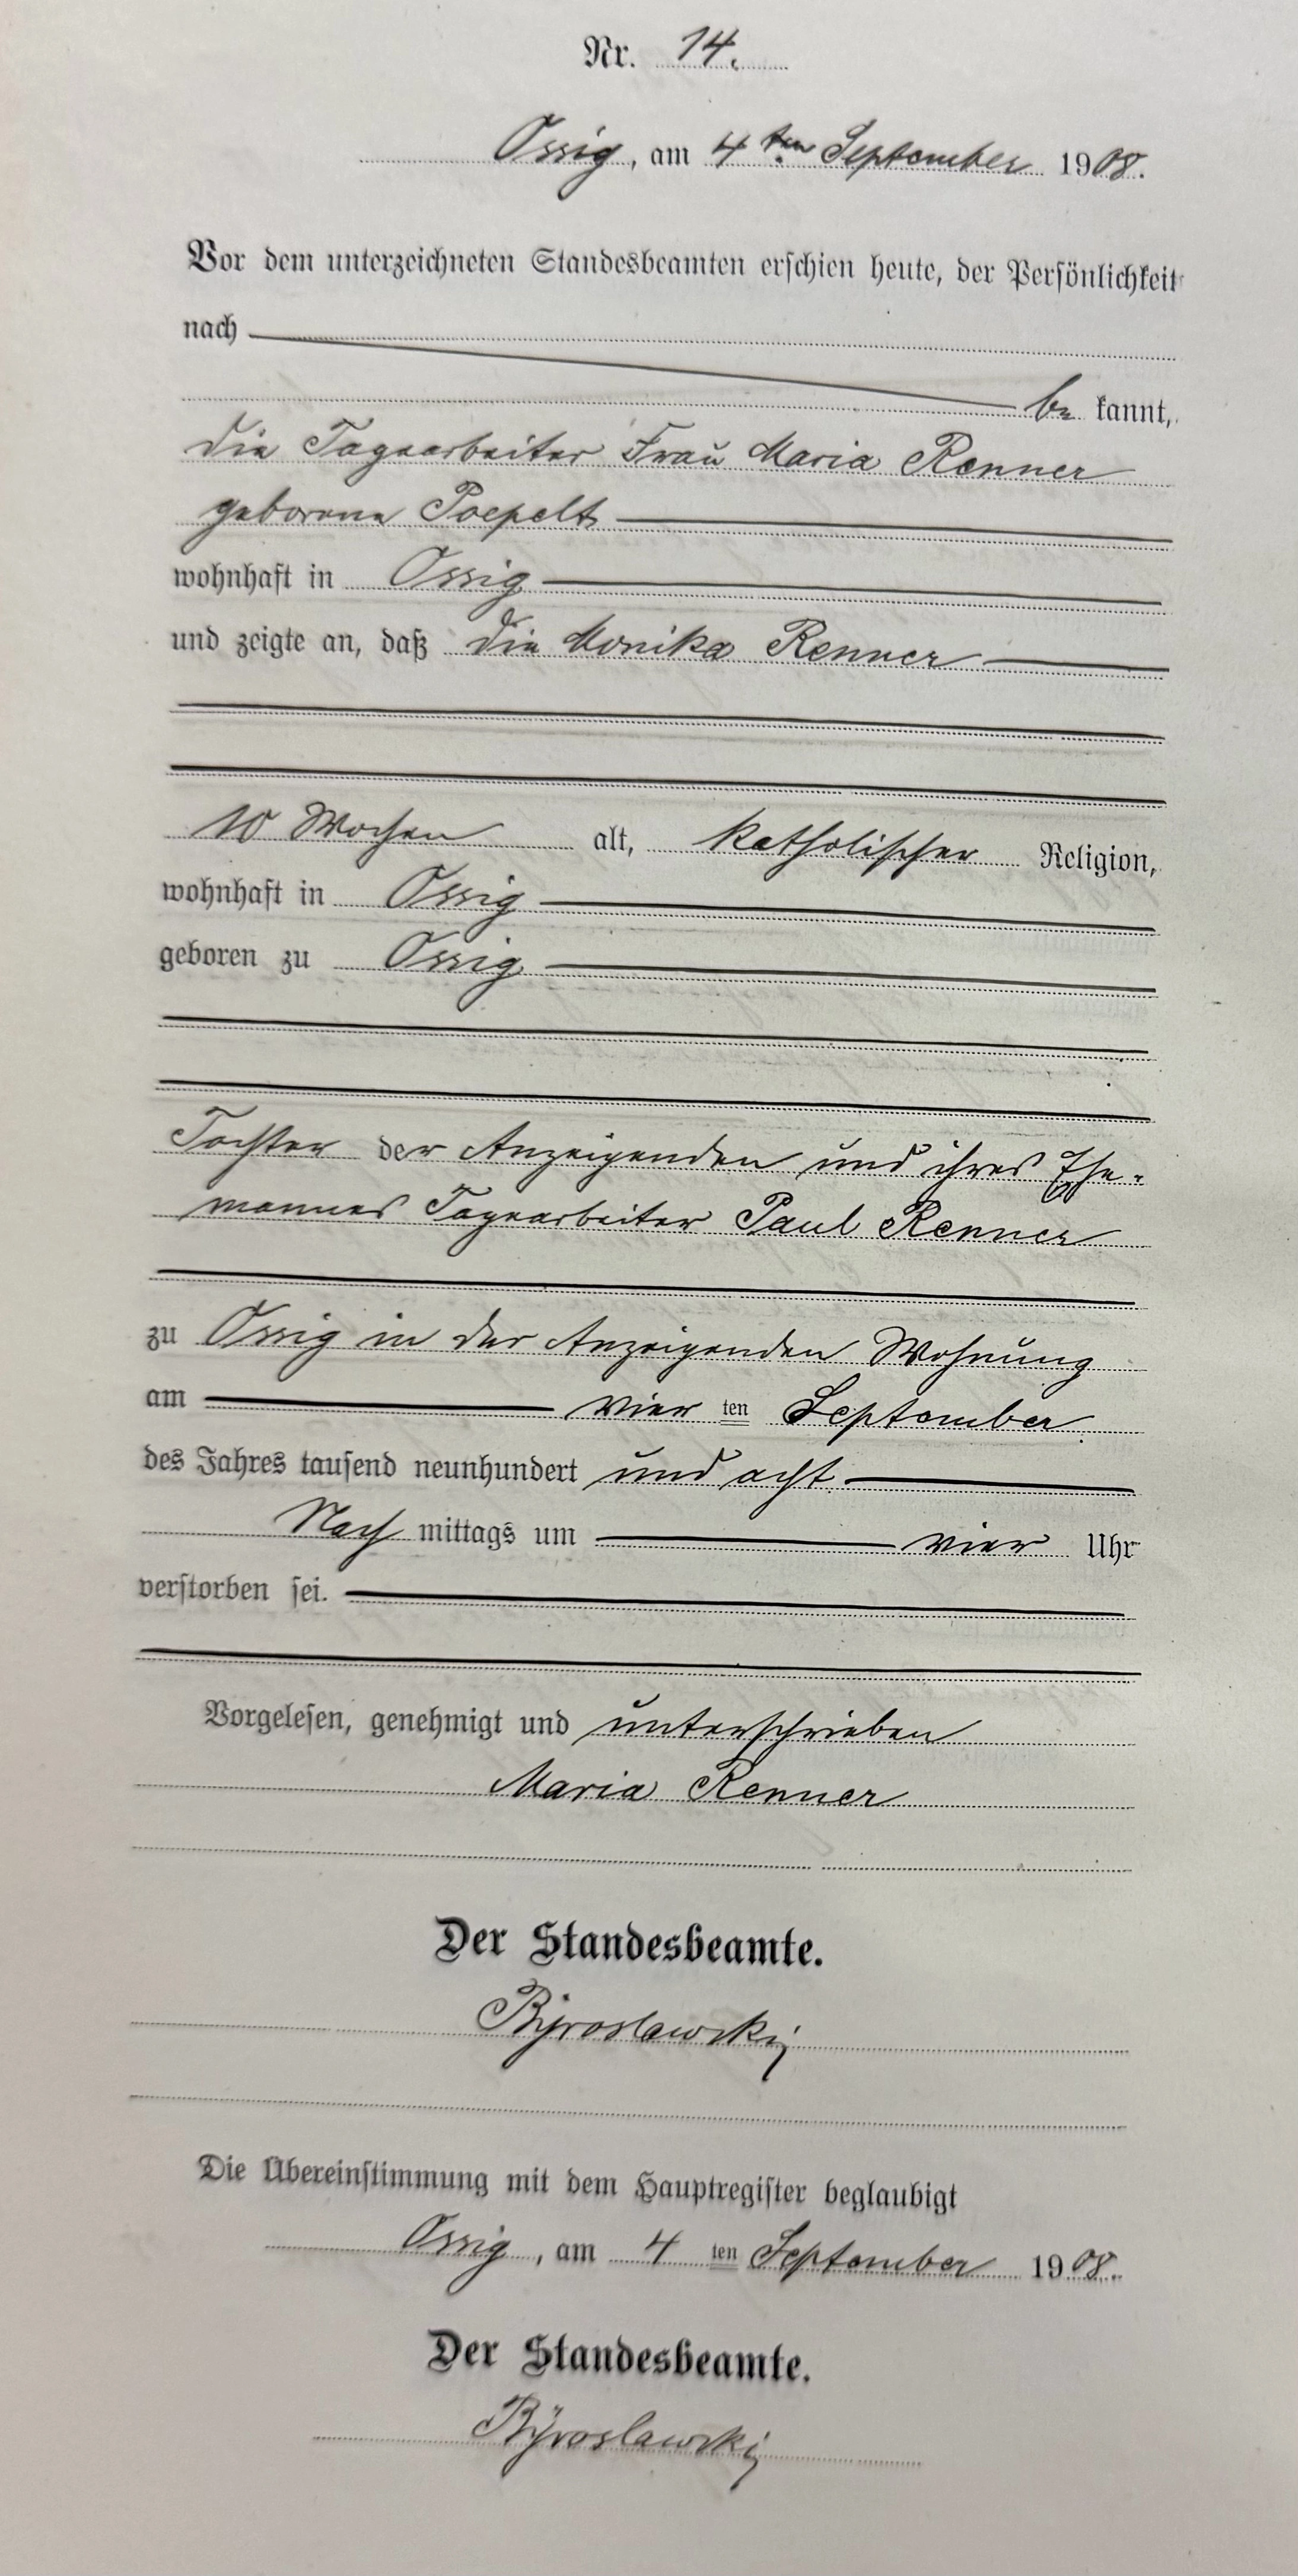 Nr. 14.
Ossig, am 4ten September 1908.
Vor dem unterzeichneten Standesbeamten erschien heute, der Persönlichkeit
nach
be kannt,
die Tagearbeiter Frau Maria Renner
geborene Poepelt
wohnhaft in Ossig
und zeigte an, daß die Monika Renner
10 Wochen alt, katholischer Religion,
wohnhaft in Ossig
geboren zu Ossig
Tochter der Anzeigenden und ihres Ehe-
mannes Tagearbeiter Paul Renner
zu Ossig in der Anzeigenden Wohnung
am vier ten September
des Jahres tausend neunhundert und acht
Nach mittags um vier Uhr
verstorben sei.
Vorgelesen, genehmigt und unterschrieben
Maria Renner
Der Standesbeamte.
Die Übereinstimmung mit dem Hauptregister beglaubigt
Ossig, am 4 ten September 1908.
Der Standesbeamte.